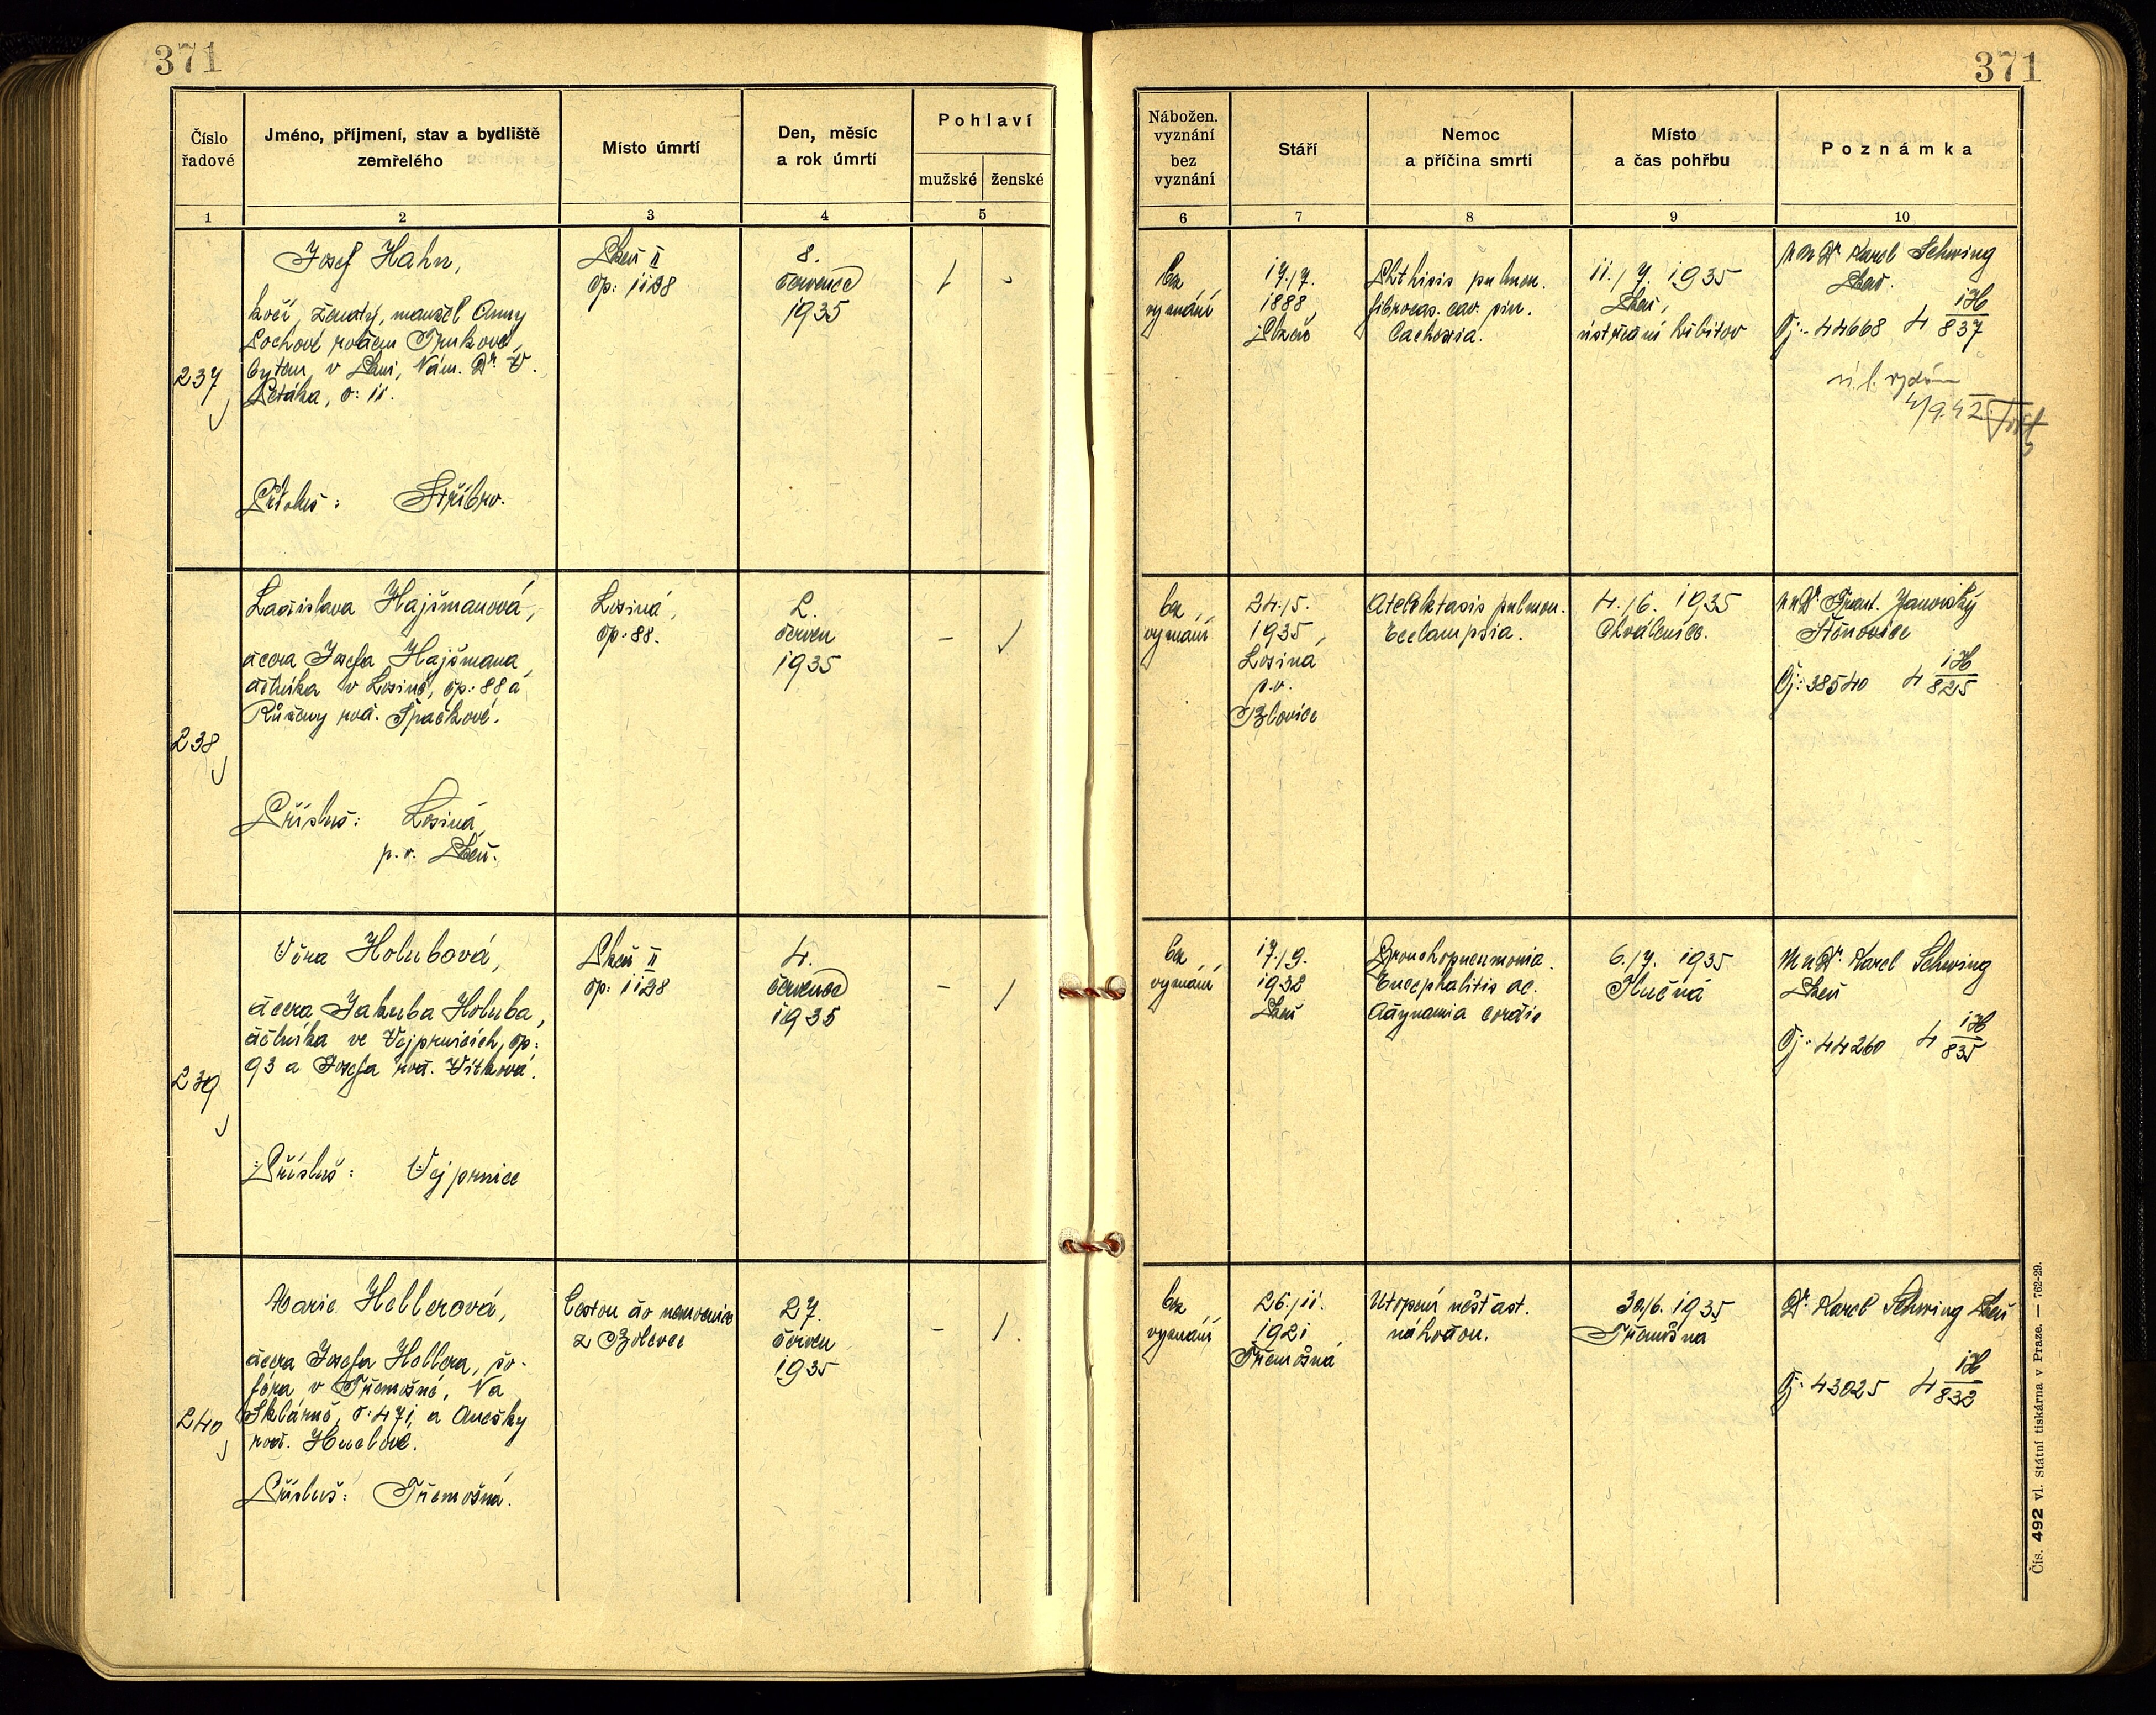 371
371
Číslo řadové
Jméno, příjmení, stav a bydliště zemřelého
Místo úmrtí
Den, měsíc a rok úmrtí
Pohlaví
mužské
ženské
1
2
3
4
5
Nábožen. vyznání
bez vyznání
Stáří
Nemoc a příčina smrti
Místo a čas pohřbu
Poznámka
6
7
8
9
10
237
Josef Hahn,
kočí, ženatý, manžel Anny
Lochové rozen Trnkové,
bytem v Plzni, Nám. Dr. V.
Petáka, č: 11.
Přísluš: Stříbro.
Plzeň II
čp: 1128
8.
července
1935
bez
vyznání
17./7.
1888,
Plzeň
Phthisis pulmon.
fibrocas. cav. sin.
Cachexia.
11./7. 1935
Plzeň,
ústřední hřbitov
MUDr Karel Schwing
Plzeň.
Čj: 44668 4 iH/837
ú. l. vydán
4/9.42
238
Ladislava Hajšmanová,
dcera Josefa Hajšmana,
dělníka v Losiné, čp: 88 a
Růženy roz. Špačkové.
Přísluš: Losiná,
p. o. Plzeň.
Losiná,
čp: 88.
2.
červen
1935
–
bez
vyznání
24./5.
1935,
Losiná
p. o.
Blovice
Atelektasis pulmon.
Eclampsia.
4./6. 1935
Chválenice.
MUDr. Frant. Janovský
Štěnovice
Čj: 38540 4 iH/825
239
Věra Holubová,
dcera Jakuba Holuba,
dělníka ve Vejprnicích, čp:
93 a Josefa roz. Vítková.
Přísluš: Vejprnice
Plzeň II
čp: 1128
4.
července
1935
–
bez
vyznání
17./9.
1932
Plzeň
Bronchopneumonia.
Encephalitis ac.
Adynamia cordis
6./7. 1935
Hlučná
MUDr. Karel Schwing
Plzeň
Čj: 44260 4 iH/835
240
Marie Hellerová,
dcera Josefa Hellera, šo-
féra v Třemošné, Na
Sklárně, č: 471, a Anežky
roz. Hucl​ové.
Přísluš: Třemošná.
Cestou do nemocnice
z Bolevce
27.
červen
1935
–
bez
vyznání
26./11.
1921
Třemošná
Utopení nešťast.
náhodou.
30/6. 1935
Třemošna
Dr. Karel Schwing Plzeň
Čj: 43025 4 iH/832
Čís. 492 vl. Státní tiskárna v Praze. — 762-29.